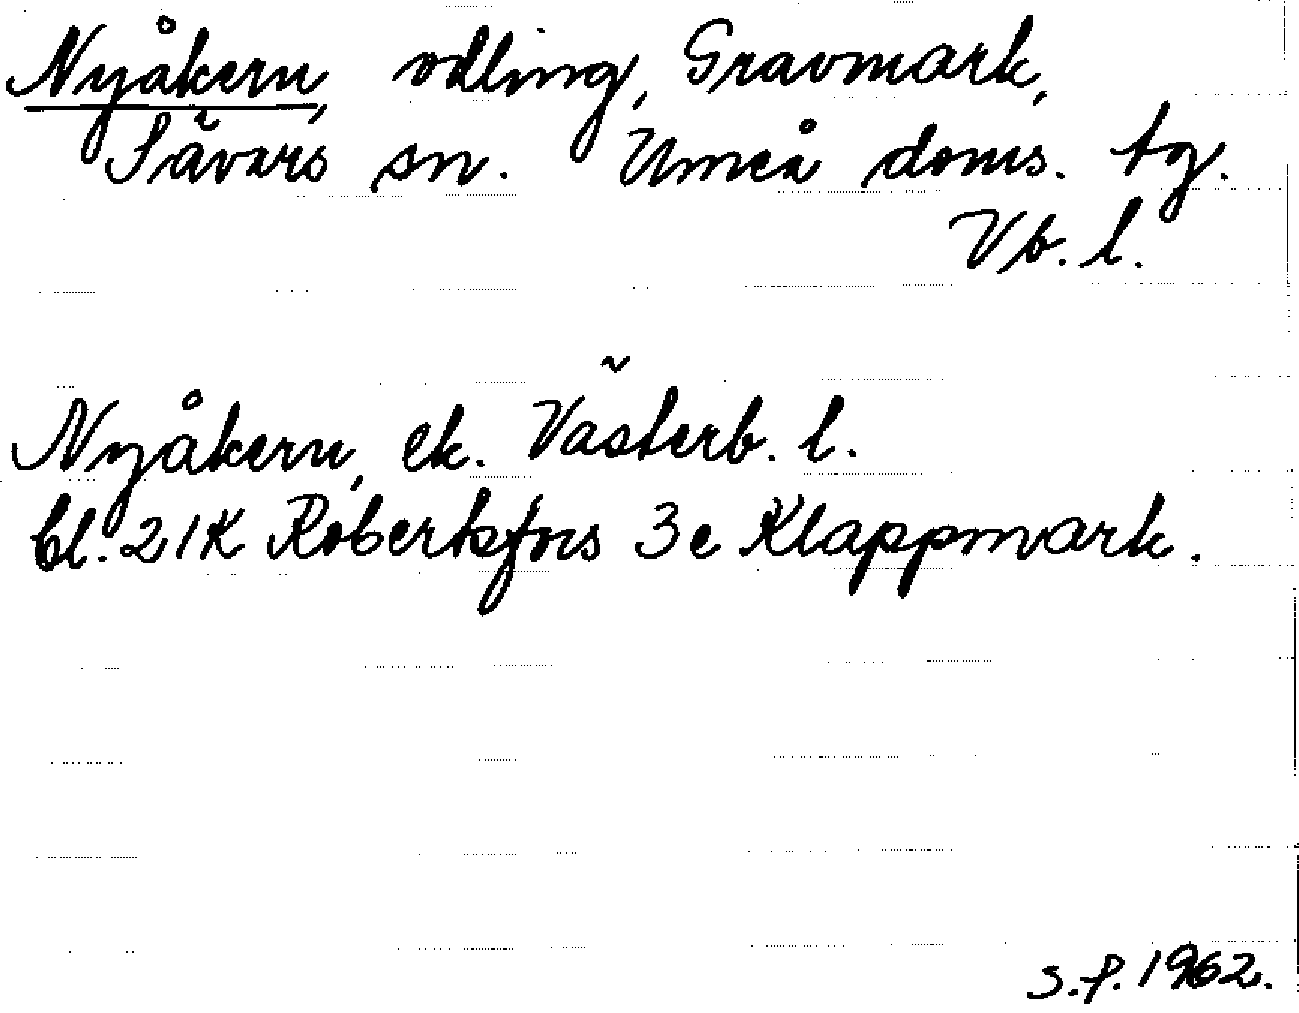 Nyåkern, odling, Gravmark,
Sävars sn. Umeå doms. tg.
Vb. l.
Nyåkern, ek. Västerb. l.
bl. 21K Robertsfors 3e Klappmark.
S.f. 1962.